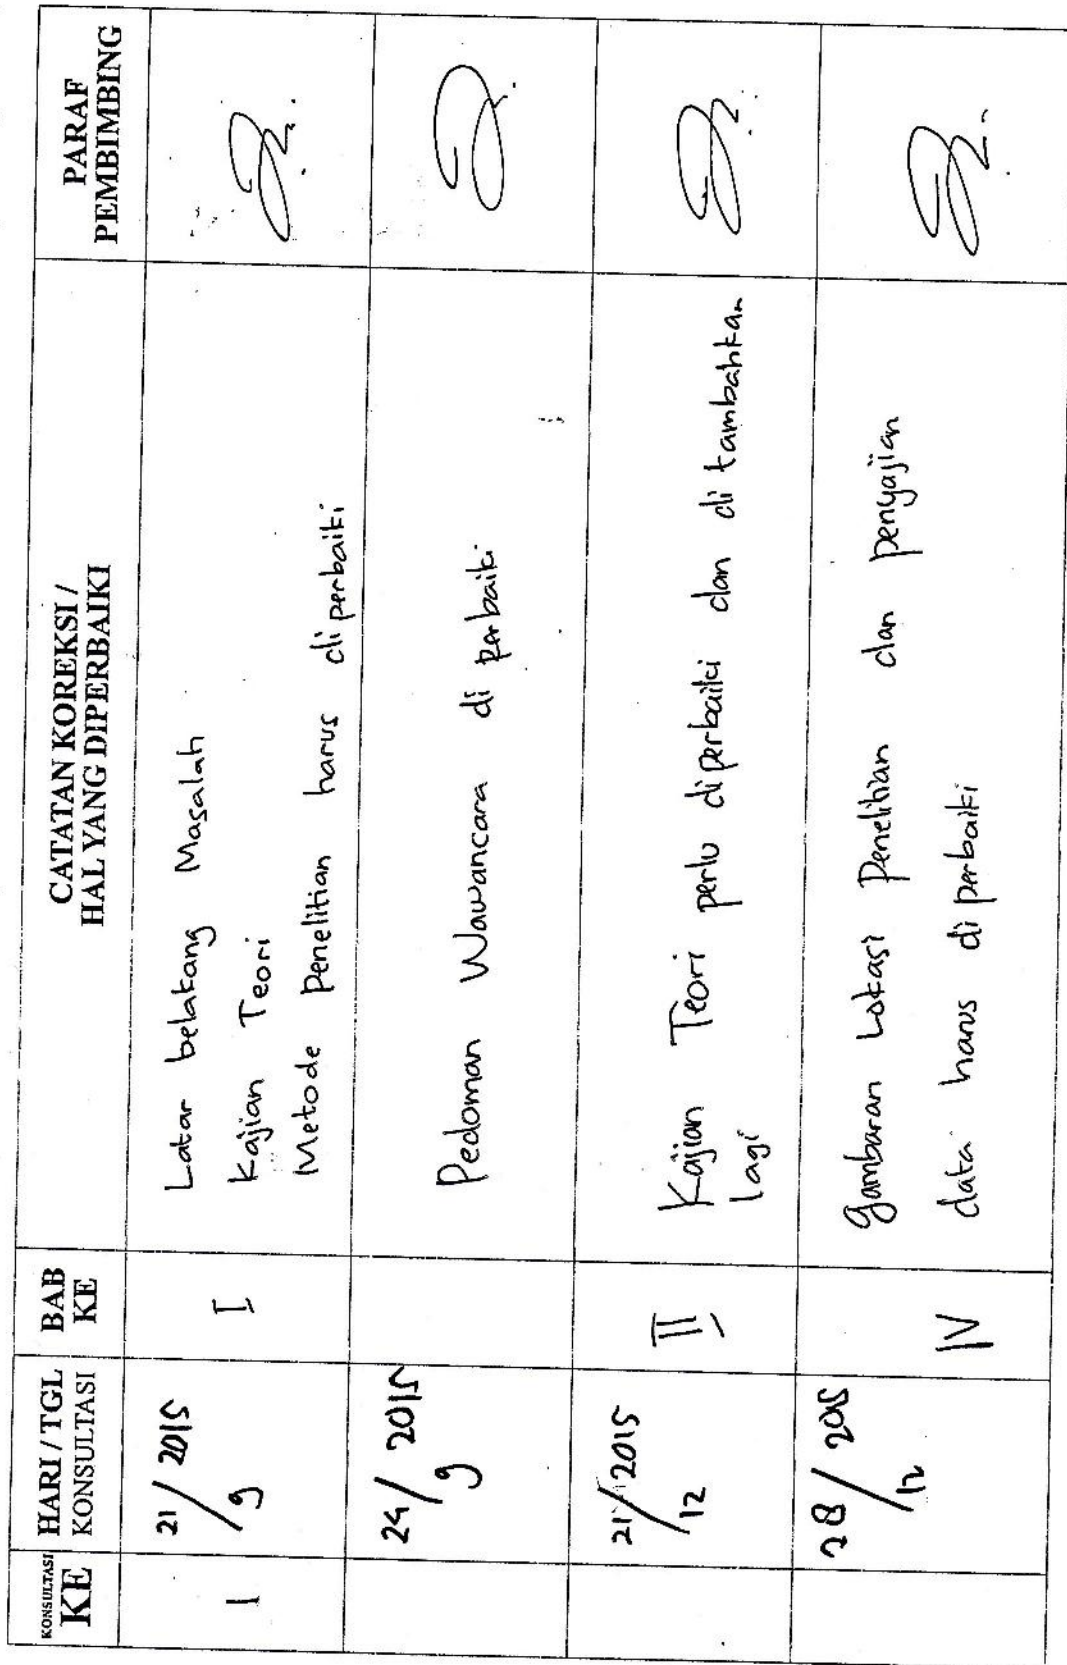 KONSULTASI KE
HARI / TGL KONSULTASI
BAB KE
CATATAN KOREKSI /
HAL YANG DIPERBAIKI
PARAF PEMBIMBING
1
21/9 2015
I
Latar belakang Masalah
Kajian Teori
Metode Penelitian harus diperbaiki
24/9 2015
Pedoman Wawancara di perbaiki
21/12 2015
II
Kajian Teori perlu diperbaiki dan di tambahkan
lagi
28/12 2015
IV
Gambaran Lokasi Penelitian dan penyajian
data harus di perbaiki